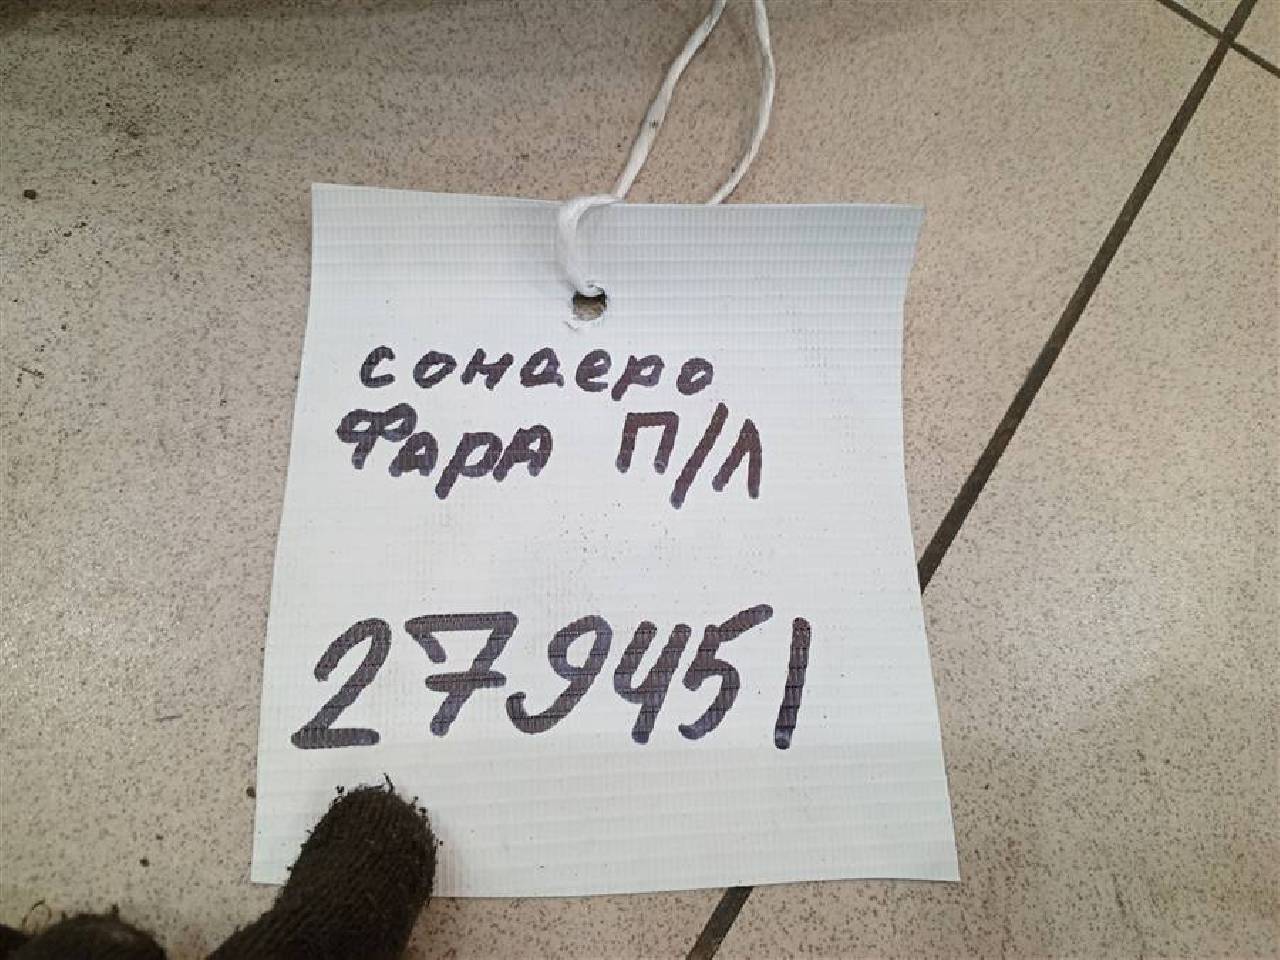 сондеро
Фара П/Л
279451